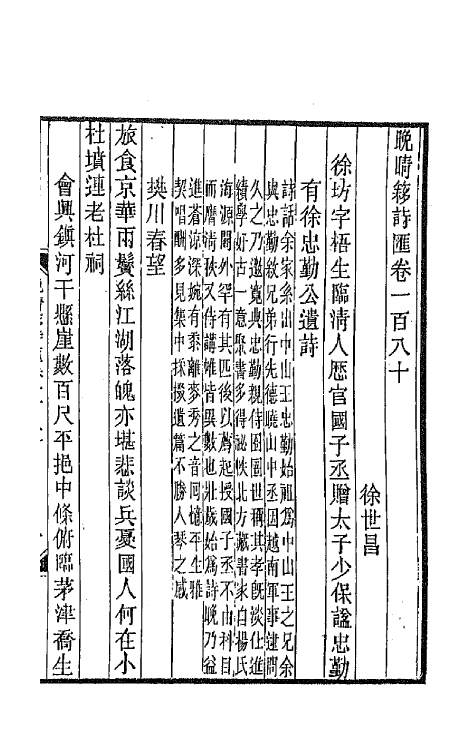 晚晴簃詩匯卷一百八十
徐世昌
徐坊字梧生臨清人歷官國子丞贈太子少保諡忠勤
有徐忠勤公遺詩
詩話余家系出中山王忠勤始祖為中山王之兄余
與忠勤敘兄弟行先德曉山中丞因越南軍事逮問
久之乃邀寬典忠勤親侍囹圄世稱其孝既淡仕進
績學好古一意聚書多得祕帙北方藏書家自楊氏
海源閣外罕有其匹後以薦起授國子丞不由科目
而膺清秩又侍講帷皆異數也壯歲始為詩晚乃益
進蒼涼深婉有黍離麥秀之音回憶平生雅
契唱酬多見集中採掇遺篇不勝人琴之感
樊川春望
旅食京華雨鬢絲江湖落魄亦堪悲談兵憂國人何在小
杜墳連老杜祠
會興鎮河干懸崖數百尺平挹中條俯臨茅津喬生